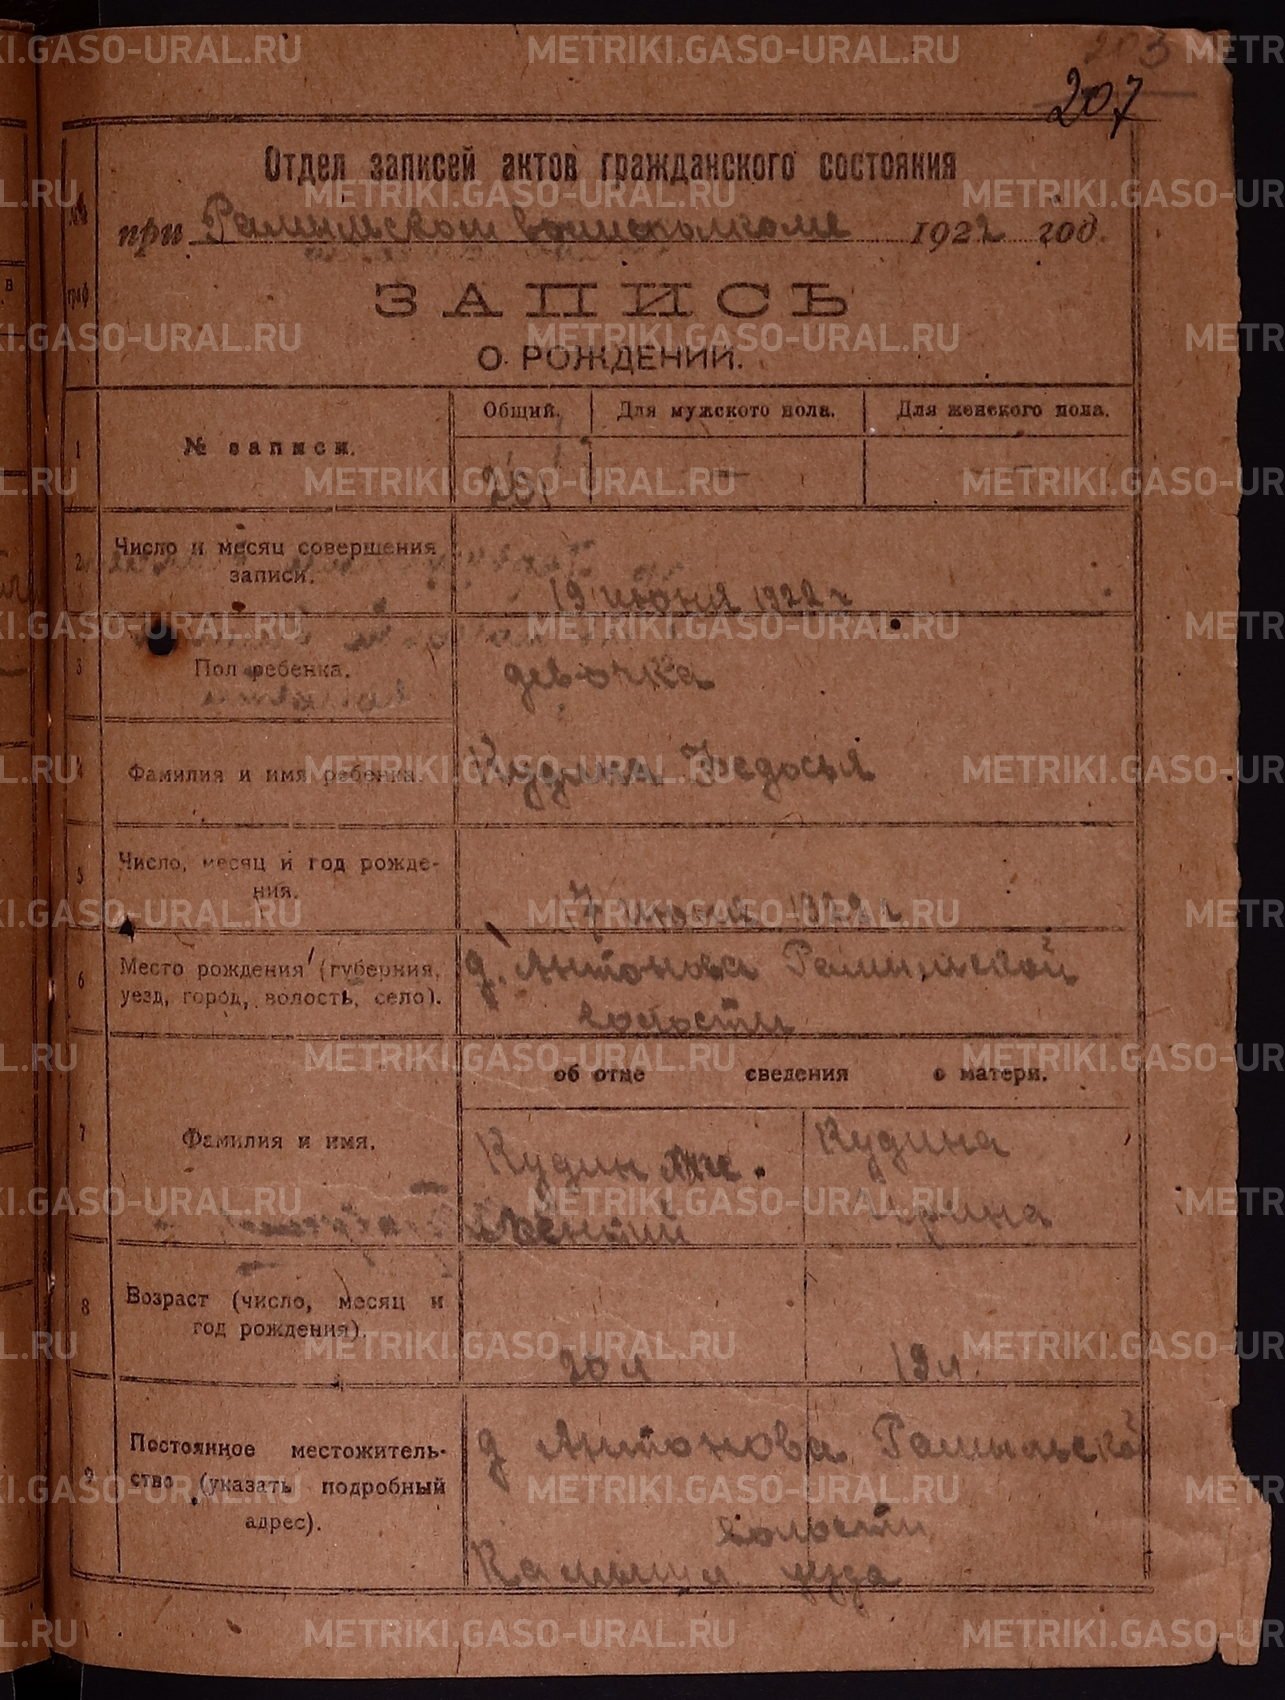 203
207
Отдел записей актов гражданского состояния
при Рамыльском волисполкоме 1922 год.
№№ граф
ЗАПИСЬ
О РОЖДЕНИИ.
1 № записи. Общий. Для мужского пола. Для женского пола.
— —
2 Число и месяц совершения
записи.
19 июня 1922 г
3 Пол ребенка. девочка
4 Фамилия и имя ребенка. Кудина Федосья
5 Число, месяц и год рожде-
ния.
7 июня 1922 г
6 Место рождения (губерния, д. Антонова Рамыльской
уезд, город, волость, село). волости
об отце сведения о матери.
7 Фамилия и имя. Кудин Кудина
Ирина
8 Возраст (число, месяц и
год рождения).
20 л 19 л.
9 Постоянное местожитель- д Антонова Рамыльской
ство (указать подробный
адрес). волости
Камышл уезда
METRIKI.GASO-URAL.RU